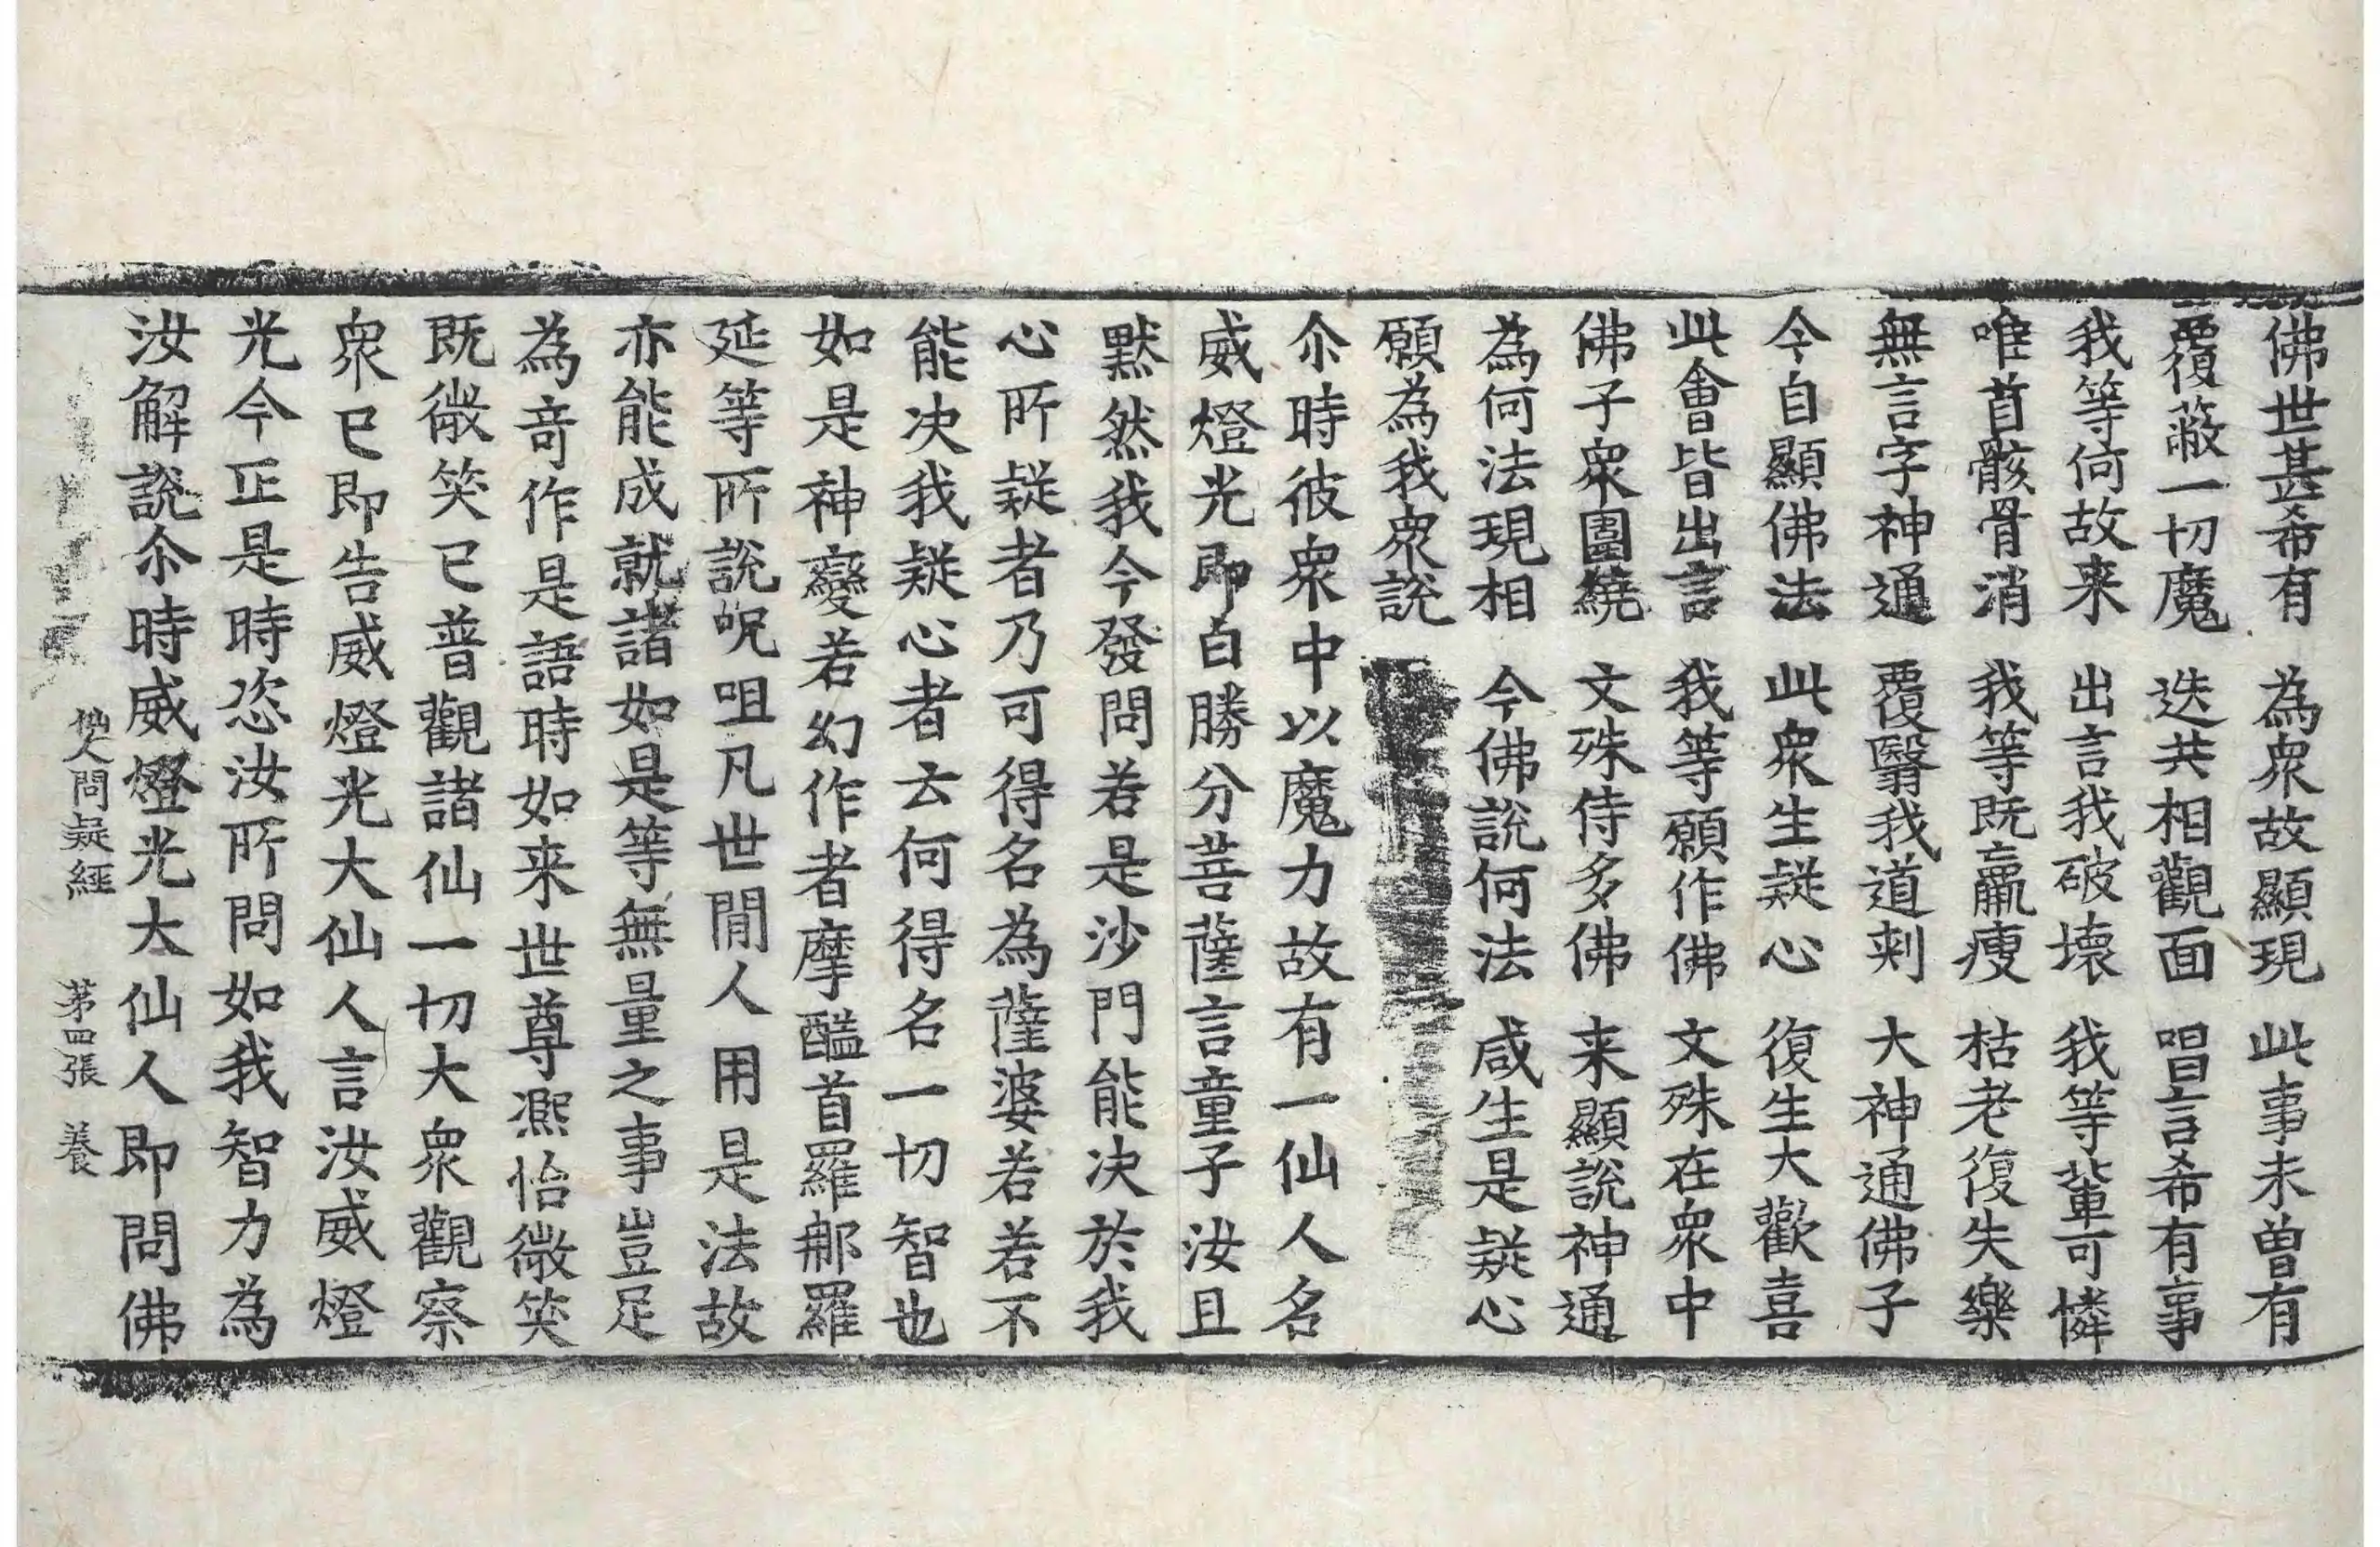 佛世甚希有 為衆故顯現 此事未曾有
覆蔽一切魔 迭共相觀面 唱言希有事
我等何故来 出言我破壞 我等軰可憐
唯首骸骨消 我等既羸瘦 枯老復失樂
無言字神通 覆翳我道刾 大神通佛子
今自顯佛法 此衆生疑心 復生大歡喜
此會皆出言 我等願作佛 文殊在衆中
佛子衆圍繞 文殊侍多佛 来顯説神通
為何法現相 今佛説何法 咸生是疑心
願為我衆説
尒時彼衆中以魔力故有一仙人名
威燈光即白勝分菩薩言童子汝且
黙然我今發問若是沙門能决於我
心所疑者乃可得名為薩婆若若不
能决我疑心者云何得名一切智也
如是神變若幻作者摩醯首羅郍羅
延等所説呪咀凡世閒人用是法故
亦能成就諸如是等無量之事豈足
為竒作是語時如来世尊凞怡微笑
既微笑已普觀諸仙一切大衆觀察
衆已即告威燈光大仙人言汝威燈
光今正是時恣汝所問如我智力為
汝解説尒時威燈光大仙人即問佛
仙人問疑經 第四張 養